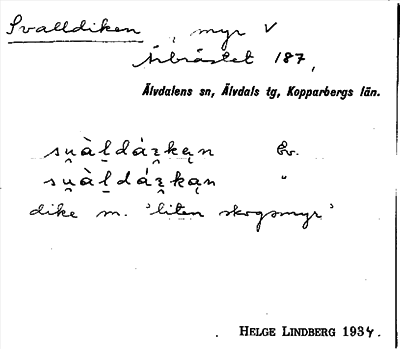 Svalldiken, myr V
Årbråstet 187,
Älvdalens sn, Älvdals tg, Kopparbergs län.
su̯àl̠dáʒ̠ką̀n Ev.
su̯àl̠dáʒ̠kąn "
dike m. 'liten skogsmyr'
HELGE LINDBERG 1934.